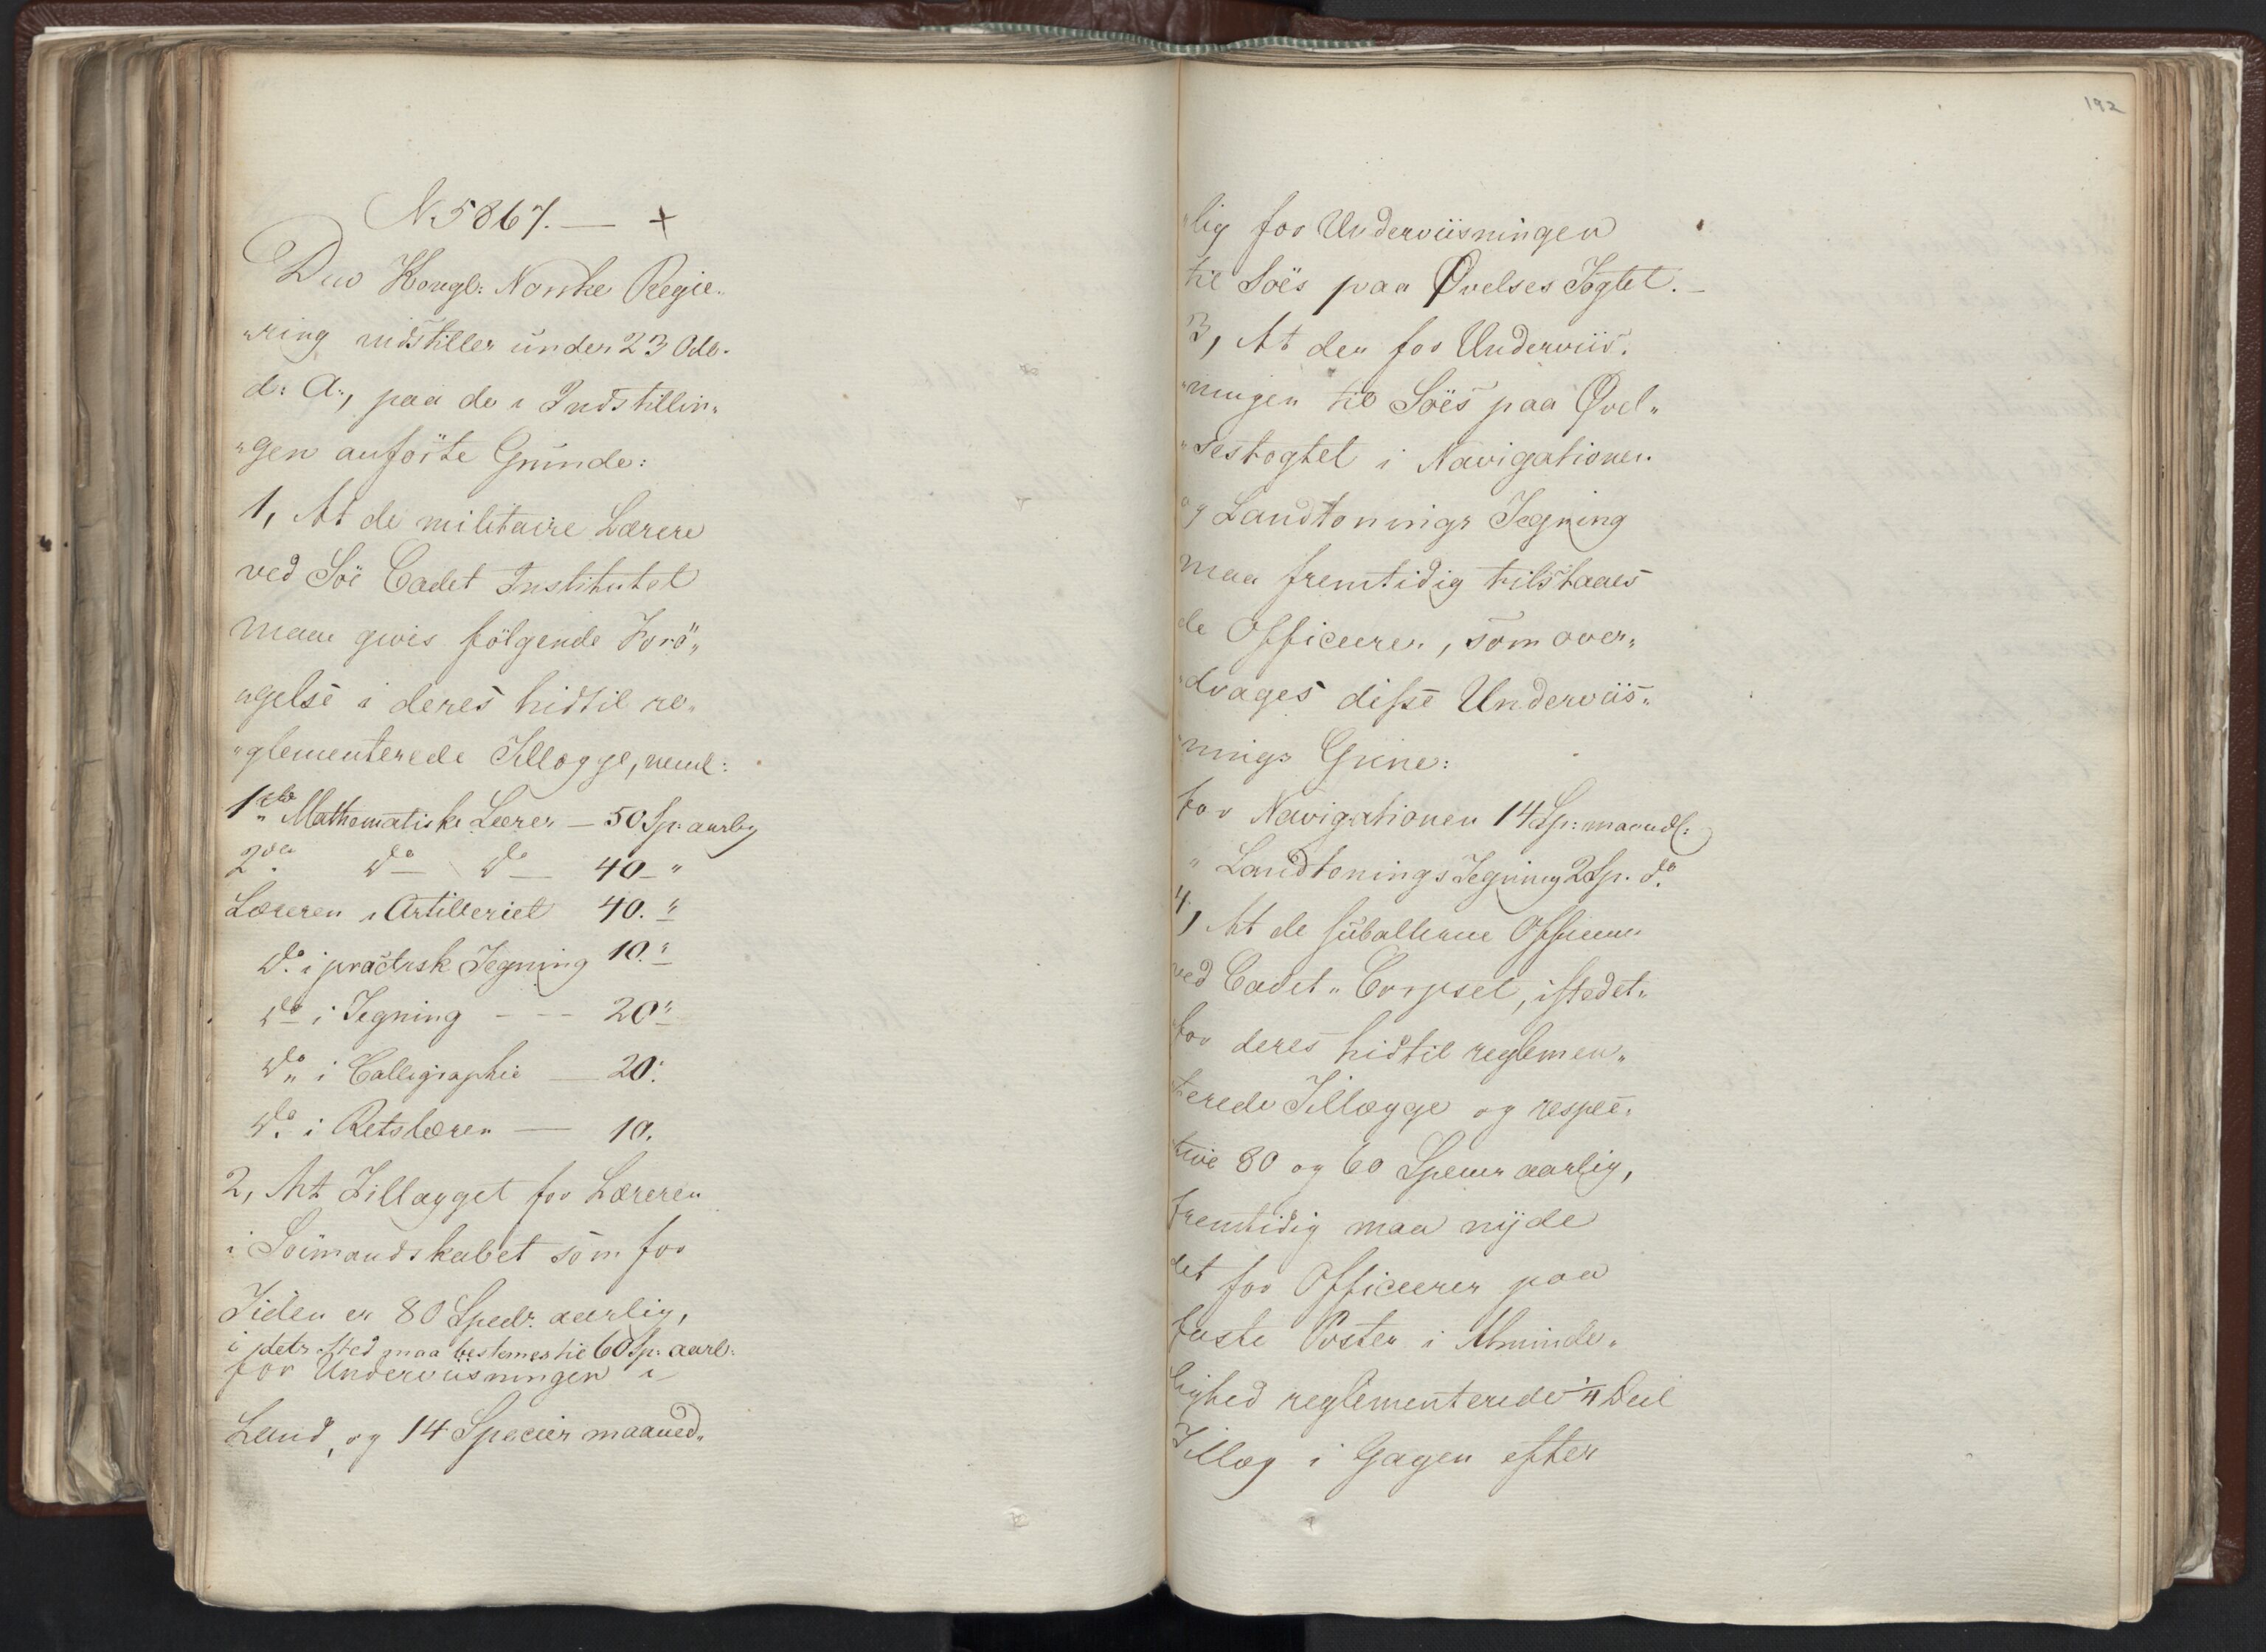 N. 5867. — +
Den Kongl: Norske Regie„
„ring indstiller under 23 Octb.
d: A:, paa de i Indstillin„
„gen anförte Grunde:
1, At de militaire Lærere
ved Söe Cadet Institutet
maae gives fölgende Forö„
„gelse i deres hidtil re„
„glementerede Tillægge, neml:
1ste Mathematiske Lærer — 50 Sp: aarlig
2den do do 40 — "
Læreren i Artilleriet 40. "
do i practisk Tegning 10. "
do i Tegning - - - 20 "
do i Calligraphie — 20:
do i Retslæren — 10.
2, At Tillægget for Læreren
i Söemandskabet som for
Tiden er 80 Specdr. aarlig,
i dets Sted maa bestemes til 60 Sp: aarl:
for Underviisningen i
Land, og 14 Specier maaned„
192
„lig for Underviisningen
til Söes paa Øvelses Togtet. —
3, At der for Underviis„
„ningen til Söes paa Øvel„
„sestogtet i Navigationen
og Landtonings Tegning
maa fremtidig tilstaaes
de Officerer, som over„
„drages disse Underviis„
„nings Grene:
for Navigationen 14 Sp: maanedl:
" Landtonings Tegning 2 Sp. do
4, At de subalterne Officerer
ved Cadet„Corpset, istedet„
for deres hidtil reglemen„
terede Tillægge og respec„
tive 80 og 60 Specier aarlig,
fremtidig maa nyde
det for Officerer paa
faste Poster i Alminde„
lighed reglementerede 1/4 Deel
Tillæg i Gagen efter